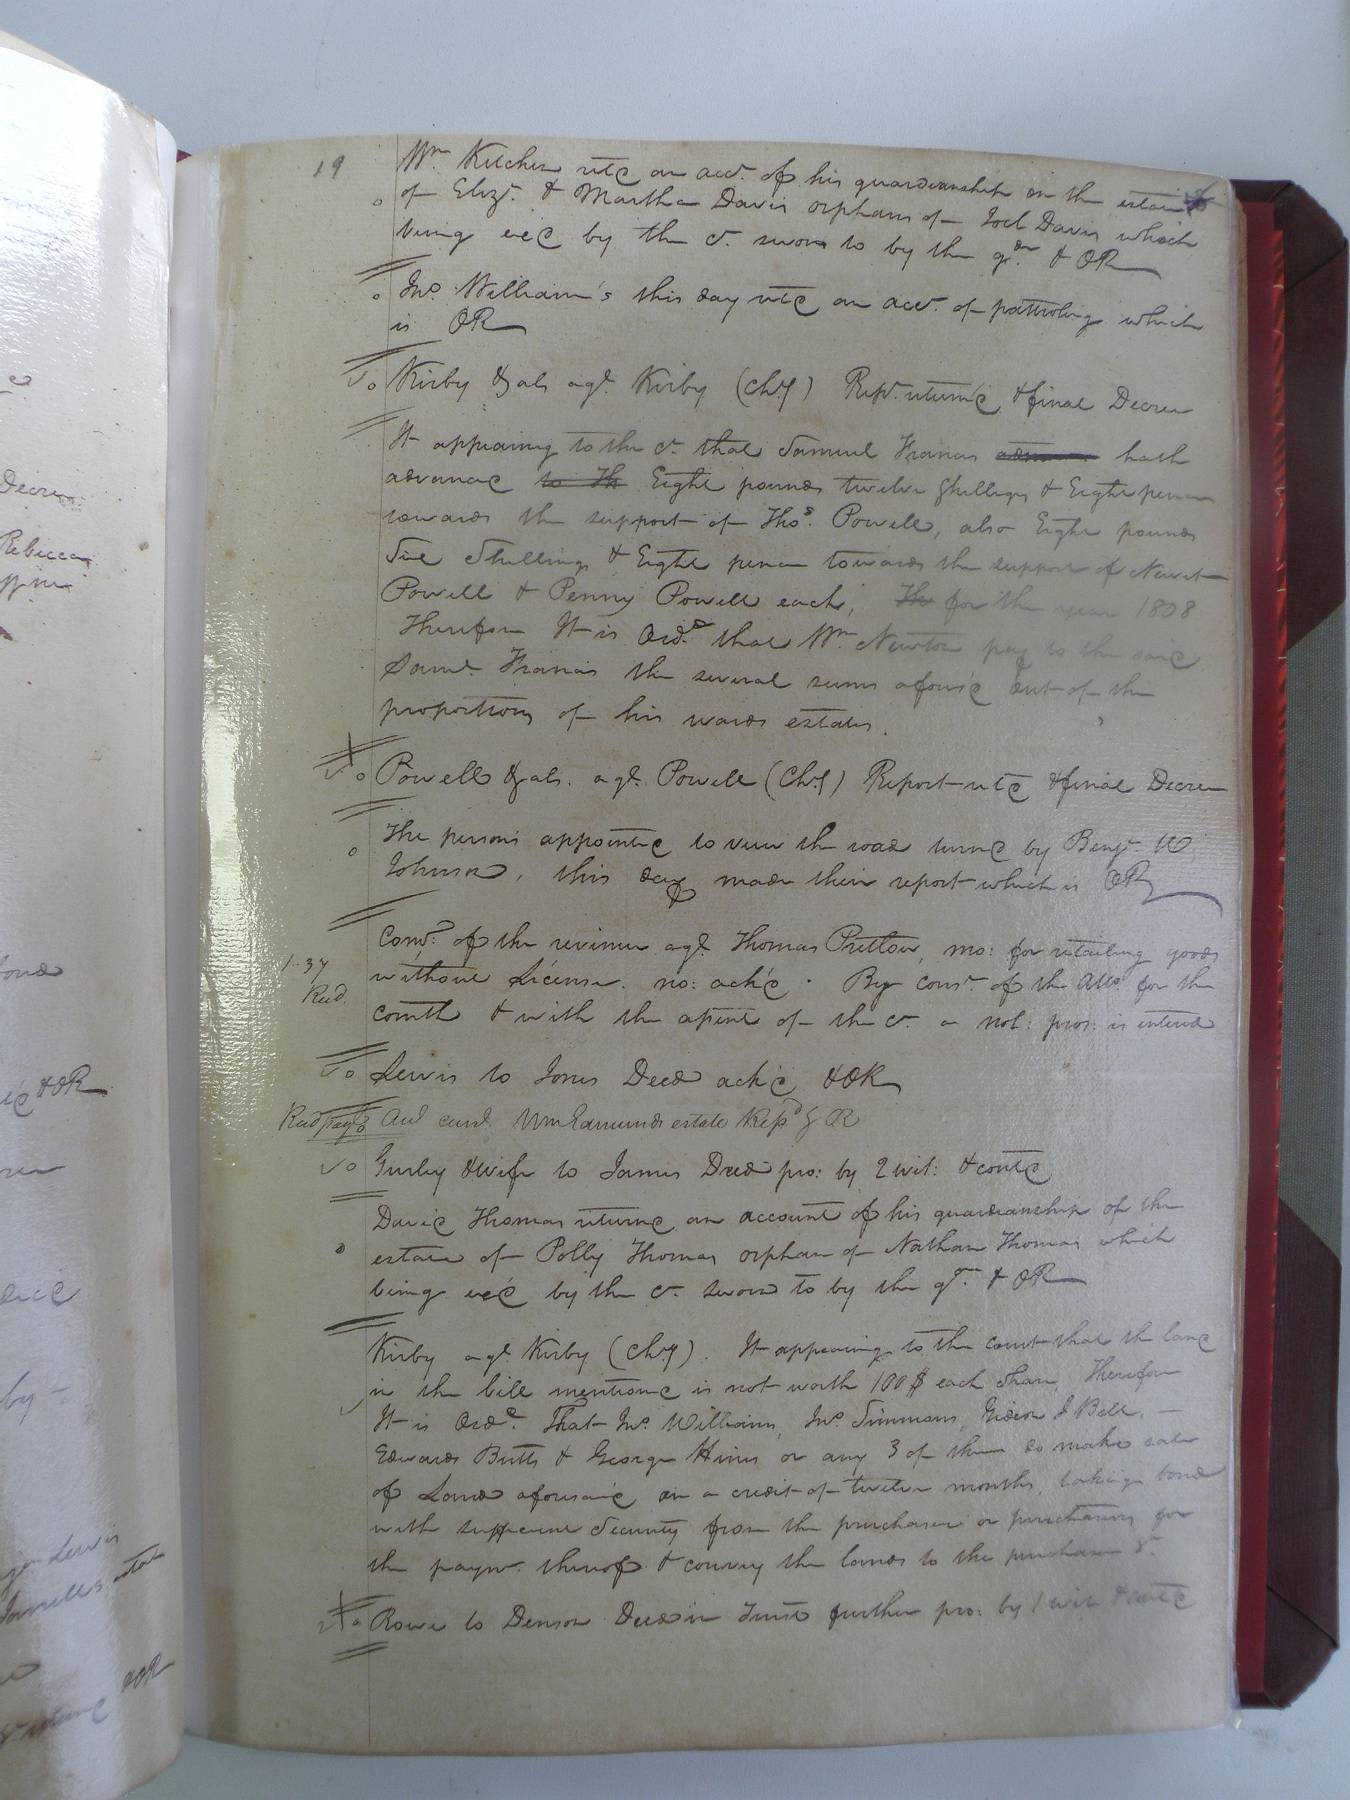 19
Wm Kitchen retd an acct. of his guardianship on the estate
of Eliza. & Martha Davis orphans of Joel Davis which
being exd by the ct. sworn to by the gdn. & OR
Jno. William's this day retd an acct. of pattroling which
is OR
Kirby & als agt. Kirby (Chy) Rept. return'd & final Decree
It appearing to the ct. that Samuel Francis hath
advanced to th Eight pounds twelve Shillings & Eight pence
towards the support of Thos. Powell, also Eight pounds
Six Shillings & Eight pence towards the support of Newit
Powell & Penny Powell each, Th for the year 1808
Therefore It is Ordd. that Wm Newton pay to the said
Saml. Francis the several sums afores'd out of the
proportions of his wards estates.
Powell & als. agt. Powell (Chy) Report retd & final Decree
The persons appointed to view the road turned by Benja. W
Johnson, this day made their report which is OR
Comth. of the revenue agt. Thomas Pretlow, mo: for retailing goods
1..37
without License. no: ack'd . By cons. of the Atto. for the
Recd.
comth & with the assent of the ct. a nol: pros: is entered
Lewis to Jones Deed ack'd & OR
Aud curd. Wm Edmunds estate Repd & R
Gurley & wife to James Deed pro: by 2 wit: & contd
David Thomas returned an account of his guardianship of the
estate of Polly Thomas orphan of Nathan Thomas which
being ex'd by the ct. sworn to by the gd. & OR
Kirby agt. Kirby (Chy). It appearing to the court that the land
in the bill mentioned is not worth 100$ each share, Therefore
It is Ordd. That Jno. Williams, Jno. Simmons, Gideon J Bell, —
Edwards Butts & George Hines or any 3 of them do make sale
of Land aforesaid on a credit of twelve months, taking bond
with sufficient Security from the purchaser or purchasers for
the paymt. thereof & convey the lands to the purchaser &c
Rowe to Denson Deed in Trust further pro: by 1 wit & contd